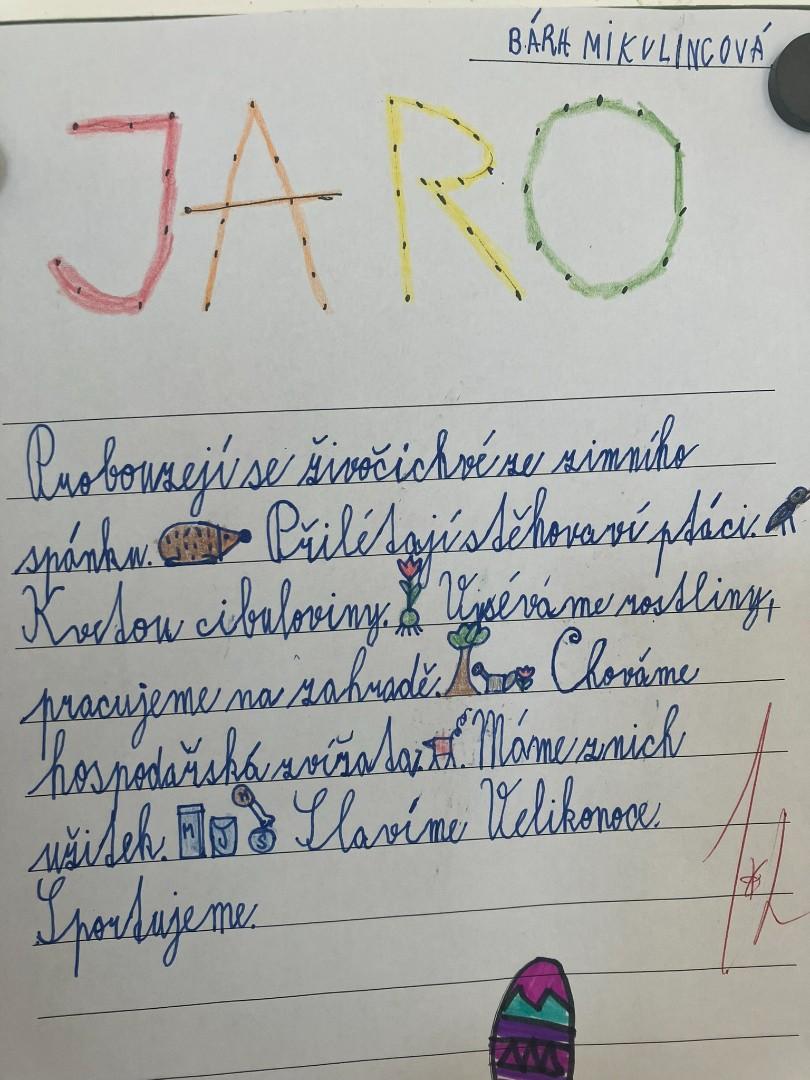 BÁRA MIKULINCOVÁ
JARO
Probouzejí se živočichvé ze zimního
spánku. Přilétají stěhovaví ptáci.
Kvetou cibuloviny. Vyséváme rostliny,
pracujeme na zahradě. Chováme
hospodářská zvířata. Máme z nich
užitek. M J S M Slavíme Velikonoce.
Sportujeme.